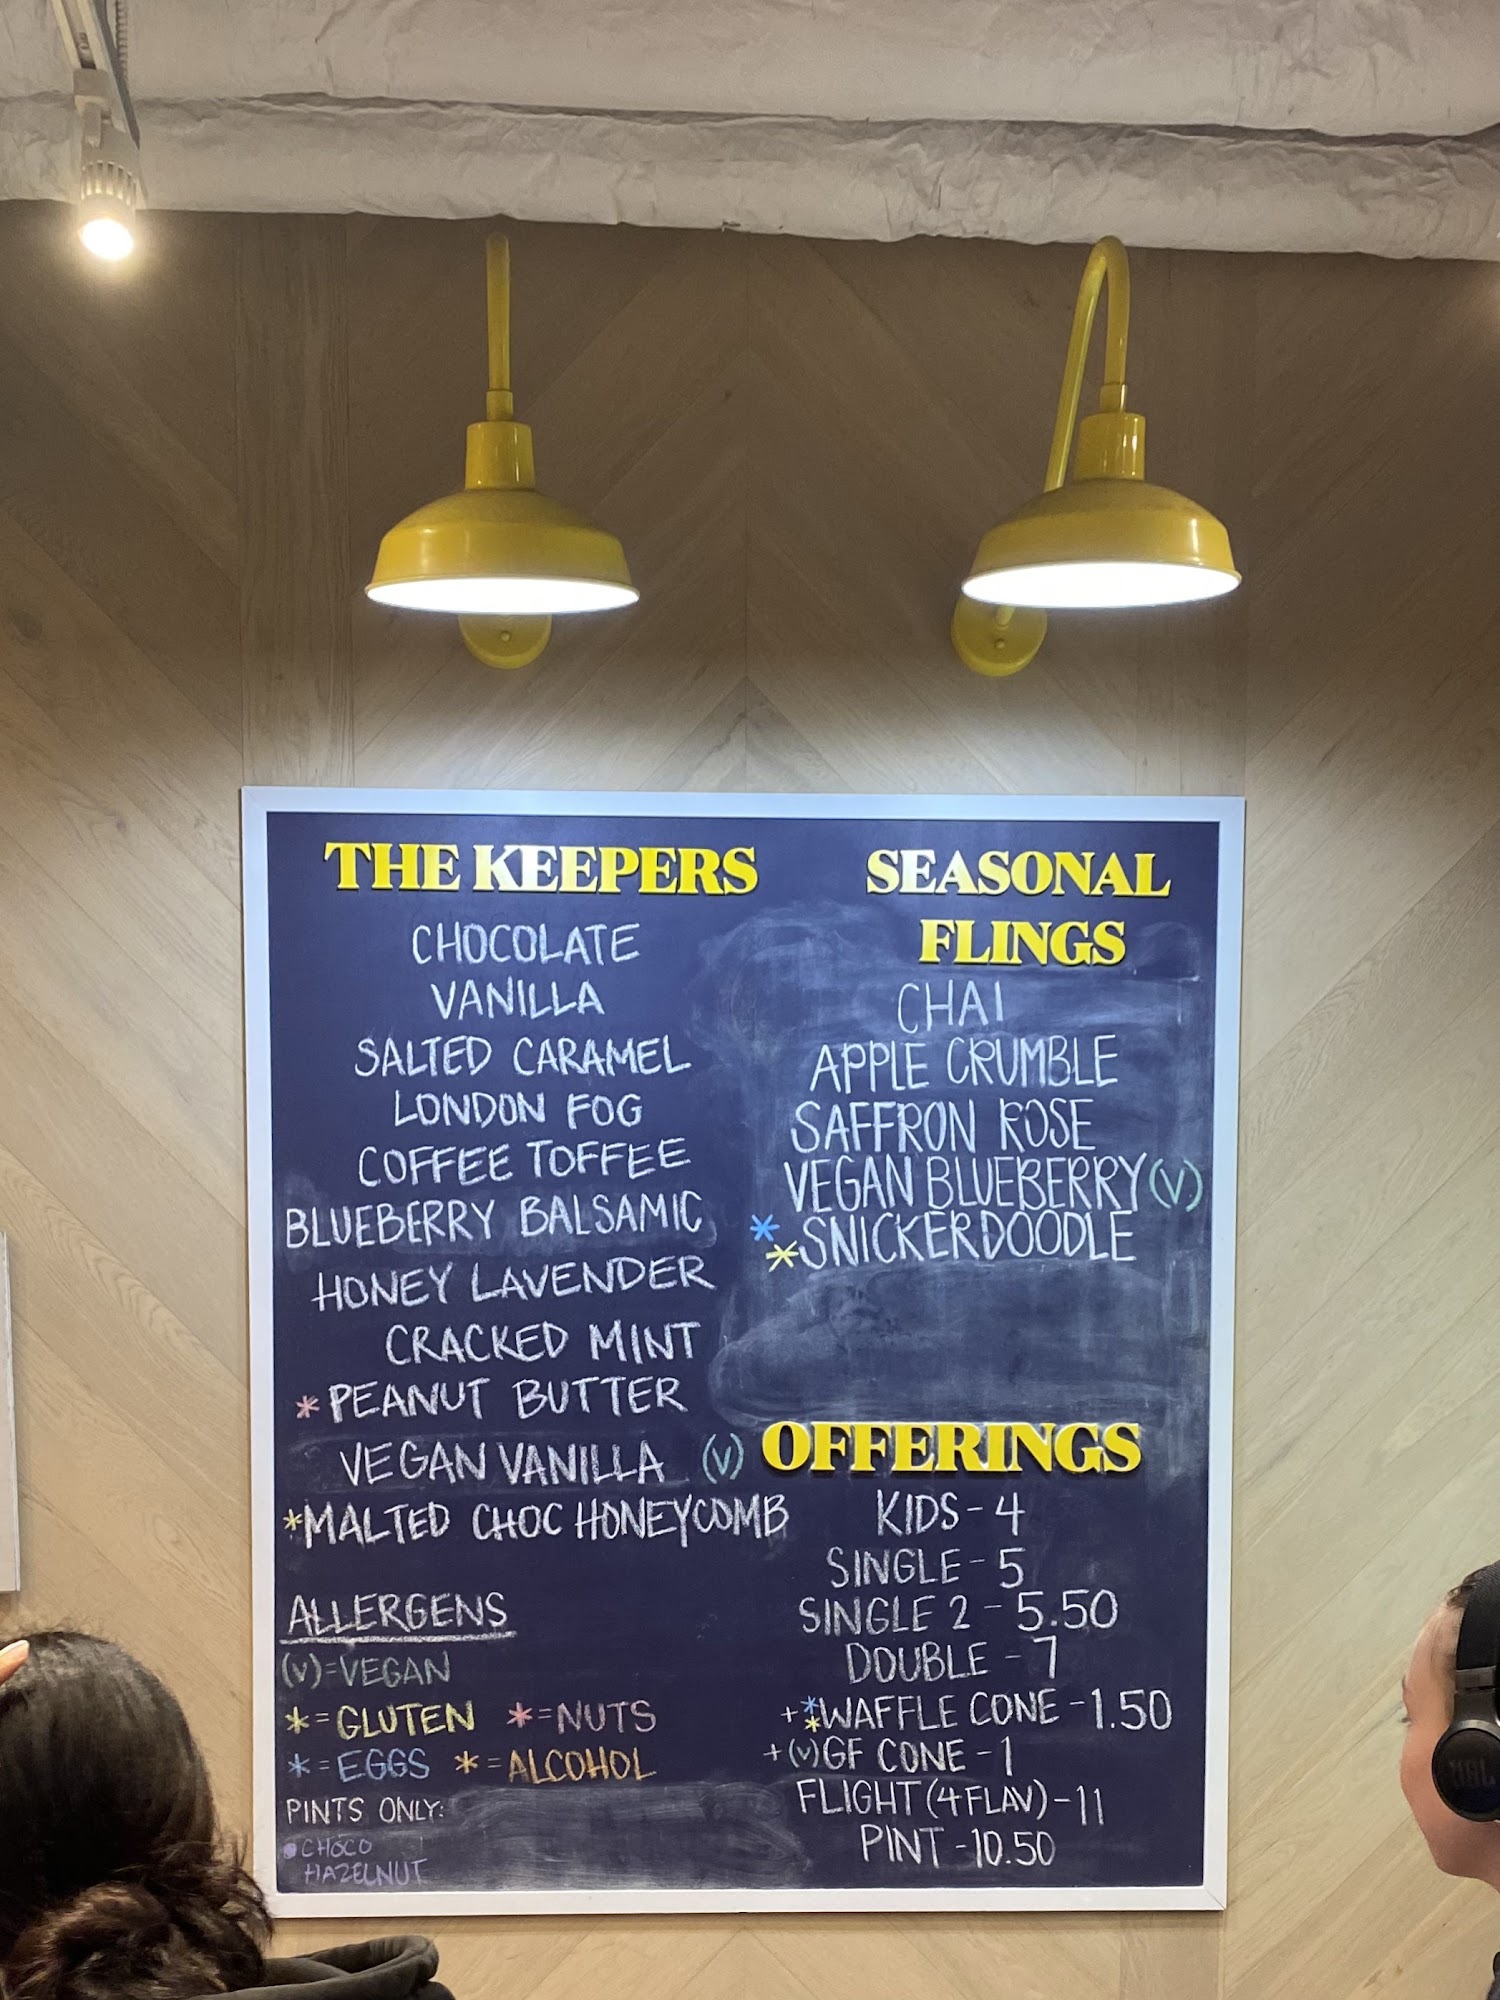 THE KEEPERS
CHOCOLATE
VANILLA
SALTED CARAMEL
LONDON FOG
COFFEE TOFFEE
BLUEBERRY BALSAMIC
HONEY LAVENDER
CRACKED MINT
*PEANUT BUTTER
VEGAN VANILLA (V)
*MALTED CHOC HONEYCOMB
ALLERGENS
(V)=VEGAN
*=GLUTEN *=NUTS
*=EGGS *=ALCOHOL
PINTS ONLY:
•CHOCO
HAZELNUT
SEASONAL
FLINGS
CHAI
APPLE CRUMBLE
SAFFRON ROSE
VEGAN BLUEBERRY (V)
**SNICKERDOODLE
OFFERINGS
KIDS - 4
SINGLE - 5
SINGLE 2 - 5.50
DOUBLE - 7
+**WAFFLE CONE - 1.50
+(V)GF CONE - 1
FLIGHT (4 FLAV) - 11
PINT - 10.50
JBL